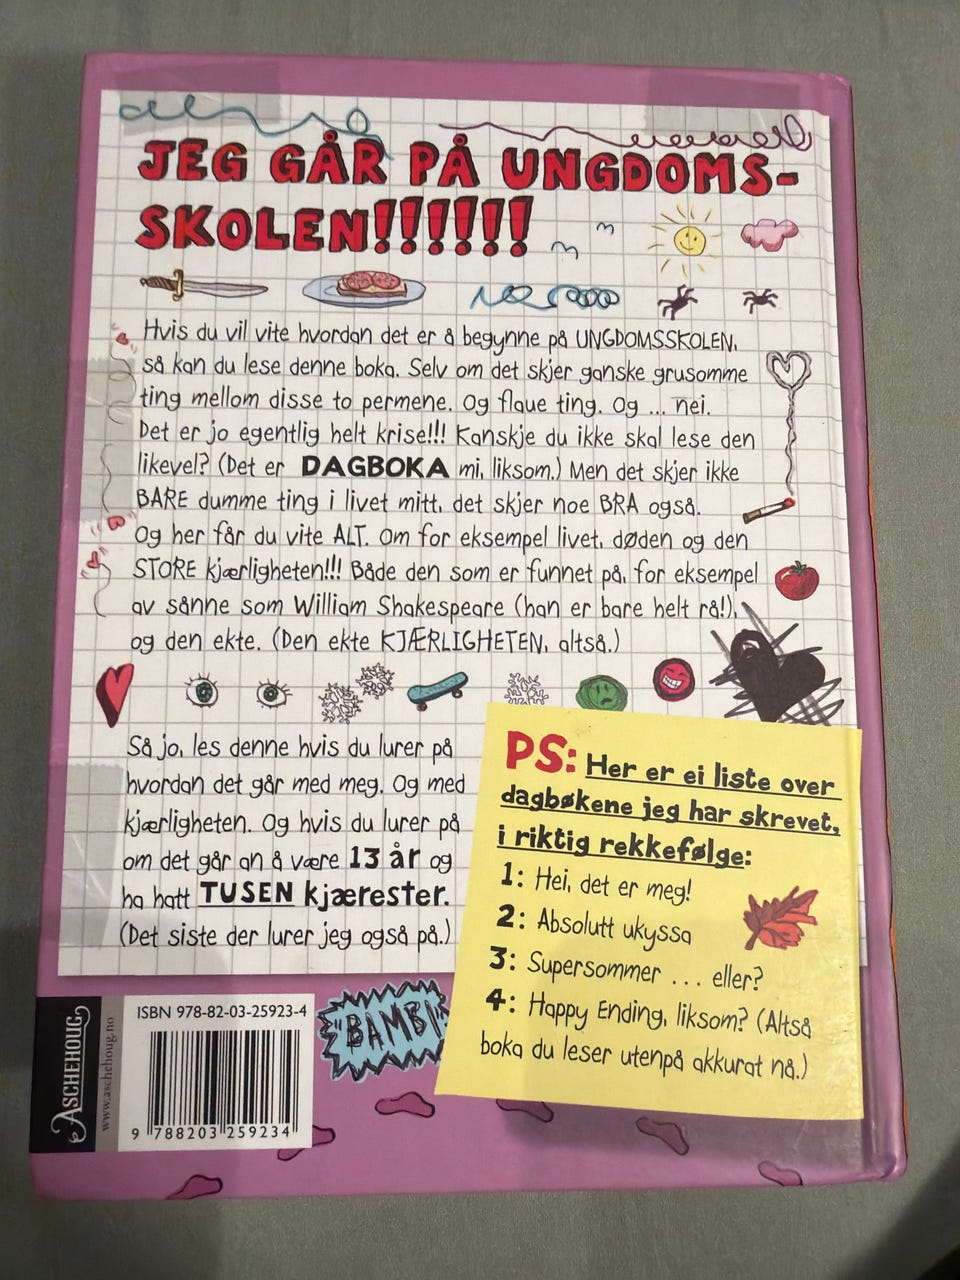 JEG GÅR PÅ UNGDOMS-
SKOLEN!!!!!!
Hvis du vil vite hvordan det er å begynne på UNGDOMSSKOLEN,
så kan du lese denne boka. Selv om det skjer ganske grusomme
ting mellom disse to permene. Og flaue ting. Og ... nei.
Det er jo egentlig helt krise!!! Kanskje du ikke skal lese den
likevel? (Det er DAGBOKA mi, liksom.) Men det skjer ikke
BARE dumme ting i livet mitt, det skjer noe BRA også.
Og her får du vite ALT. Om for eksempel livet, døden og den
STORE kjærligheten!!! Både den som er funnet på, for eksempel
av sånne som William Shakespeare (han er bare helt rå!),
og den ekte. (Den ekte KJÆRLIGHETEN, altså.)
Så jo, les denne hvis du lurer på
hvordan det går med meg. Og med
kjærligheten. Og hvis du lurer på
om det går an å være 13 år og
ha hatt TUSEN kjærester.
(Det siste der lurer jeg også på.)
PS: Her er ei liste over
dagbøkene jeg har skrevet,
i riktig rekkefølge:
1: Hei, det er meg!
2: Absolutt ukyssa
3: Supersommer ... eller?
4: Happy Ending, liksom? (Altså
boka du leser utenpå akkurat nå.)
ASCHEHOUG
www.aschehoug.no
ISBN 978-82-03-25923-4
9 788203 259234
"BAMBI"